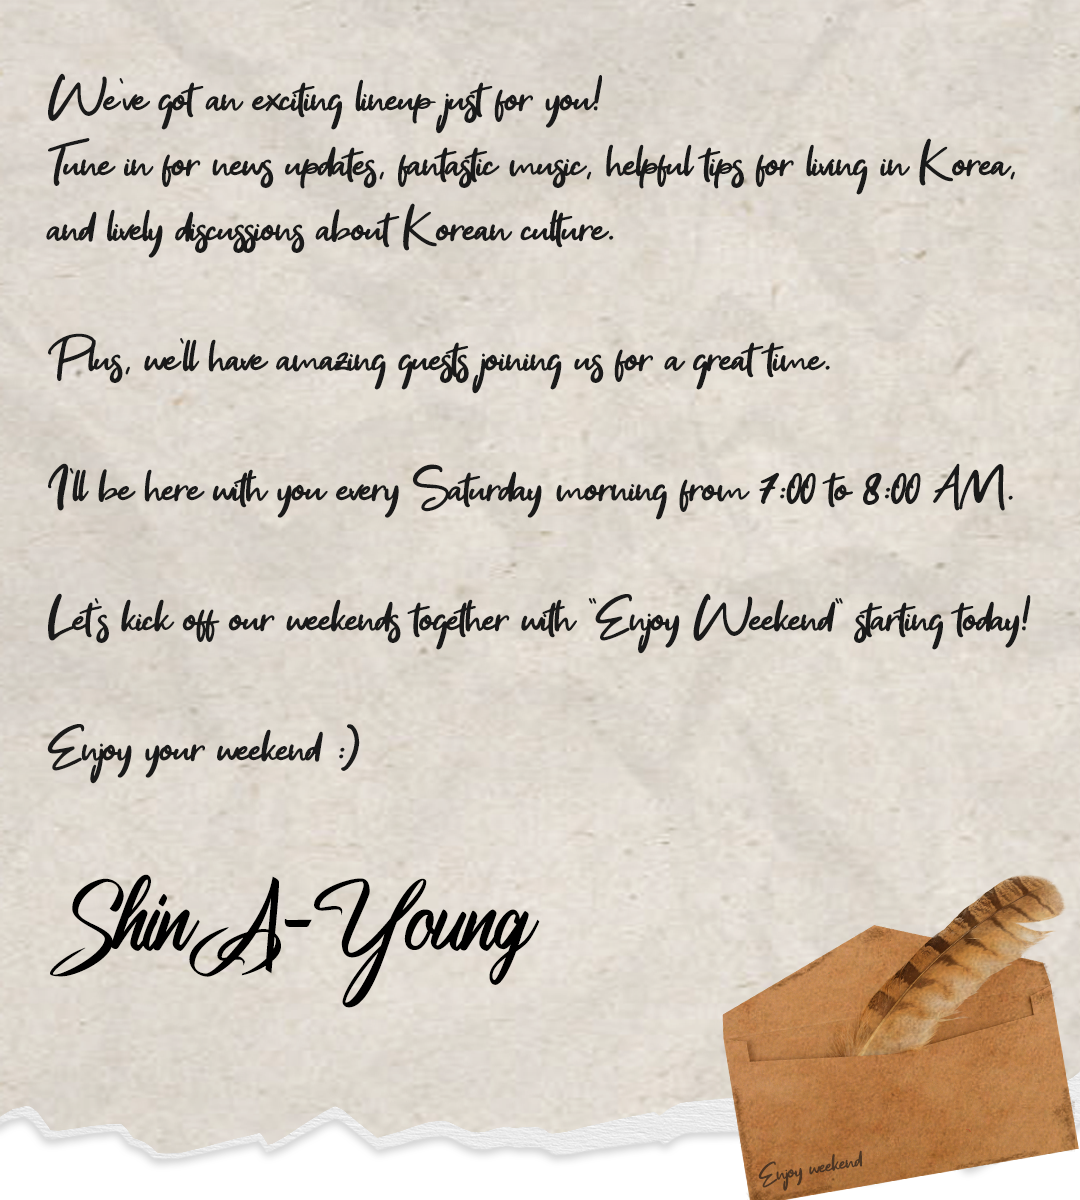 We've got an exciting lineup just for you!
Tune in for news updates, fantastic music, helpful tips for living in Korea,
and lively discussions about Korean culture.
Plus, we'll have amazing guests joining us for a great time.
I'll be here with you every Saturday morning from 7:00 to 8:00 AM.
Let's kick off our weekends together with "Enjoy Weekend" starting today!
Enjoy your weekend :)
Shin A-Young
Enjoy weekend